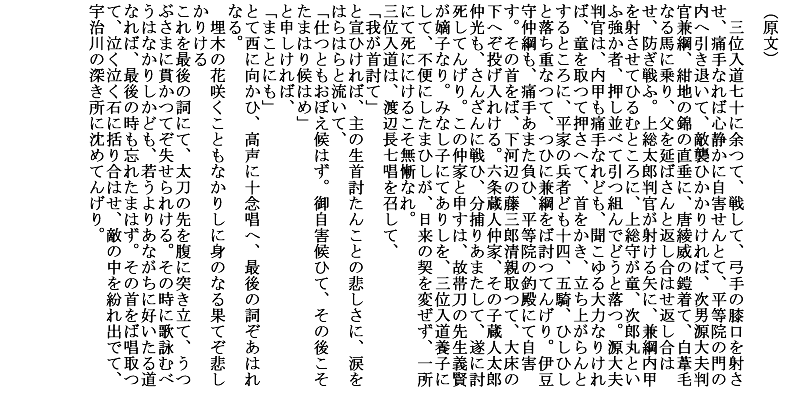 （原文）
　三位入道七十に余つて、戦して、弓手の膝口を射さ
せ、痛手なれば心静かに自害せんとて、平等院の門の
内へ引き退いて、敵襲ひかかりければ、次男源大夫判
官兼綱、紺地の錦の直垂に、唐綾威の鎧着て、白葦毛
なる馬に乗り、父を延ばさんと返し合はせ返し合は
せ、防ぎ戦ふ。上総太郎判官が射ける矢に、兼綱内甲
を射させてひるむところに、上総守が童、次郎丸とい
ふ強か者、押し並べて引つ組んでどうと落つ。源大夫
判官は、内甲も痛手なれども、聞こゆる大力なりけれ
ば、童を取つて押さへて、首をかき、立ち上がらんと
するところに、平家の兵者ども十四、五騎、ひしひし
と落ち重なつて、つひに兼綱をば討つてんげり。伊豆
守仲綱も、痛手あまた負ひ、平等院の釣殿にて自害
す。その首をば、下河辺の藤三郎清親取つて、大床の
下へぞ投げ入れける。六条蔵人仲家、その子蔵人太郎
仲光も、さんざんに戦ひ、分捕りあまたして、遂に討
死してんげり。この仲家と申すは、故帯刀の先生義賢
が嫡子なり。みなし子にてありしを、三位入道養子に
して、不便にしたまひしが、日来の契を変ぜず、一所
にて死ににけるこそ無慚なれ。
　三位入道は、渡辺長七唱を召して、
「我が首討て」
と宣ひければ、主の生首討たんことの悲しさに、涙を
はらはらと流いて、
「仕つともおぼえ候はず。御自害候ひて、その後こそ
たまはり候はめ」
と申しければ、
「まことにも」
とて西に向かひ、高声に十念唱へ、最後の詞ぞあはれ
なる。
　埋木の花咲くこともなかりしに身のなる果てぞ悲し
かりける
これを最後の詞にて、太刀の先を腹に突き立て、うつ
ぶさまに貫かつてぞ失せられける。その時に歌詠むべ
うはなかりしかども、若うよりあながちに好いたる道
なれば、最後の時も忘れたまはず。その首をば唱取つ
て、泣く泣く石に括り合はせ、敵の中を紛れ出でて、
宇治川の深き所に沈めてんげり。